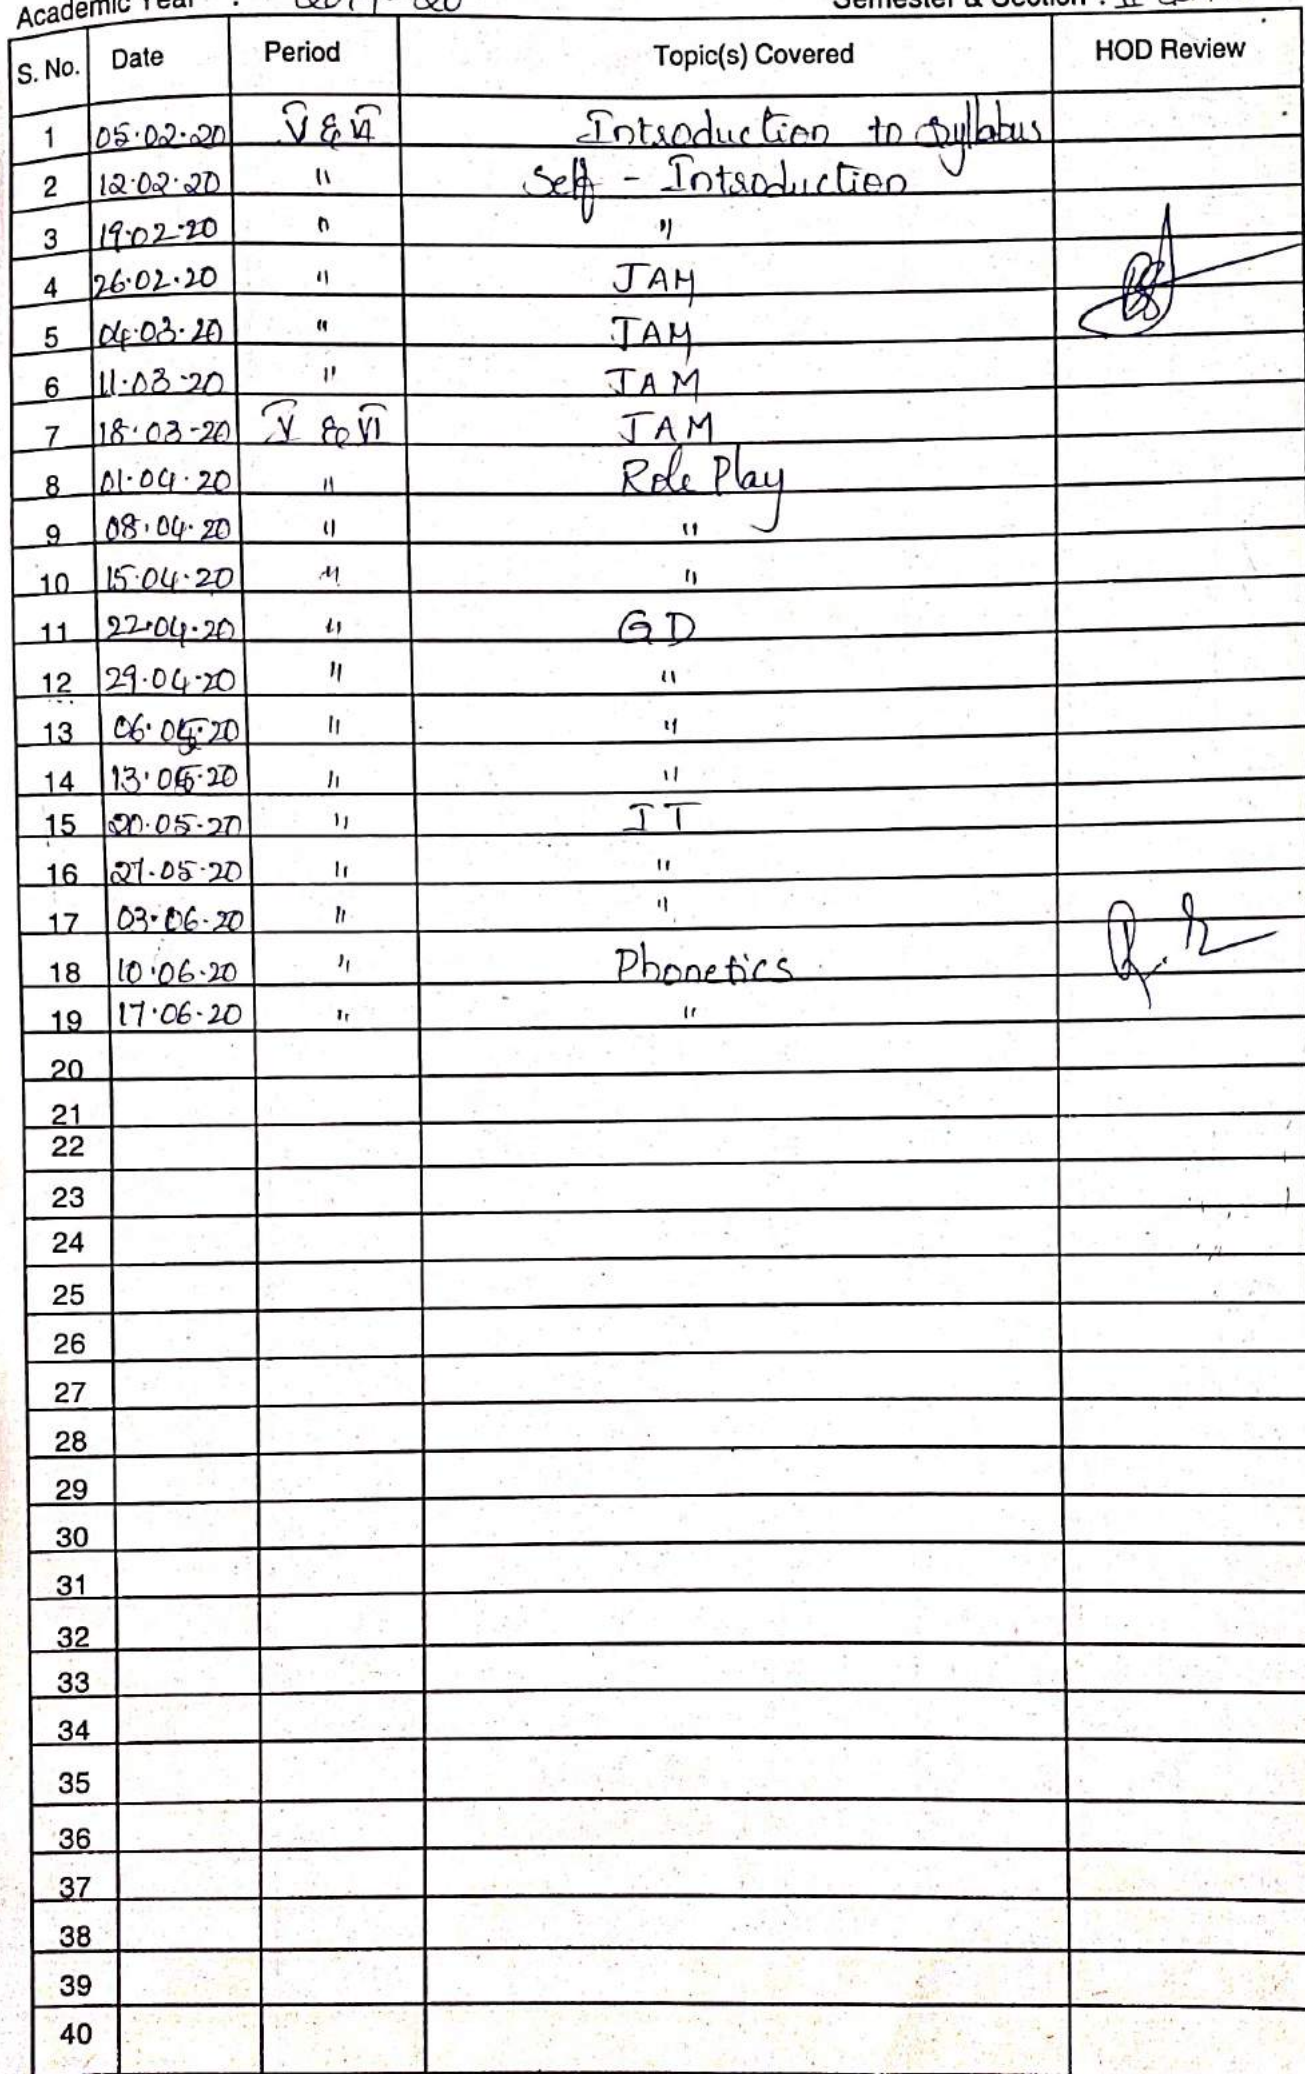 Academic Year : 2019-20 Semester & Section : II
S. No. Date Period Topic(s) Covered HOD Review
1 05.02.20 V & VI Introduction to Syllabus
2 12.02.20 " Self - Introduction
3 19.02.20 " "
4 26.02.20 " JAM
5 04.03.20 " JAM
6 11.03.20 " JAM
7 18.03.20 V & VI JAM
8 01.04.20 " Role Play
9 08.04.20 " "
10 15.04.20 " "
11 22.04.20 " GD
12 29.04.20 " "
13 06.05.20 " "
14 13.05.20 " "
15 20.05.20 " IT
16 27.05.20 " "
17 03.06.20 " "
18 10.06.20 " Phonetics
19 17.06.20 " "
20
21
22
23
24
25
26
27
28
29
30
31
32
33
34
35
36
37
38
39
40